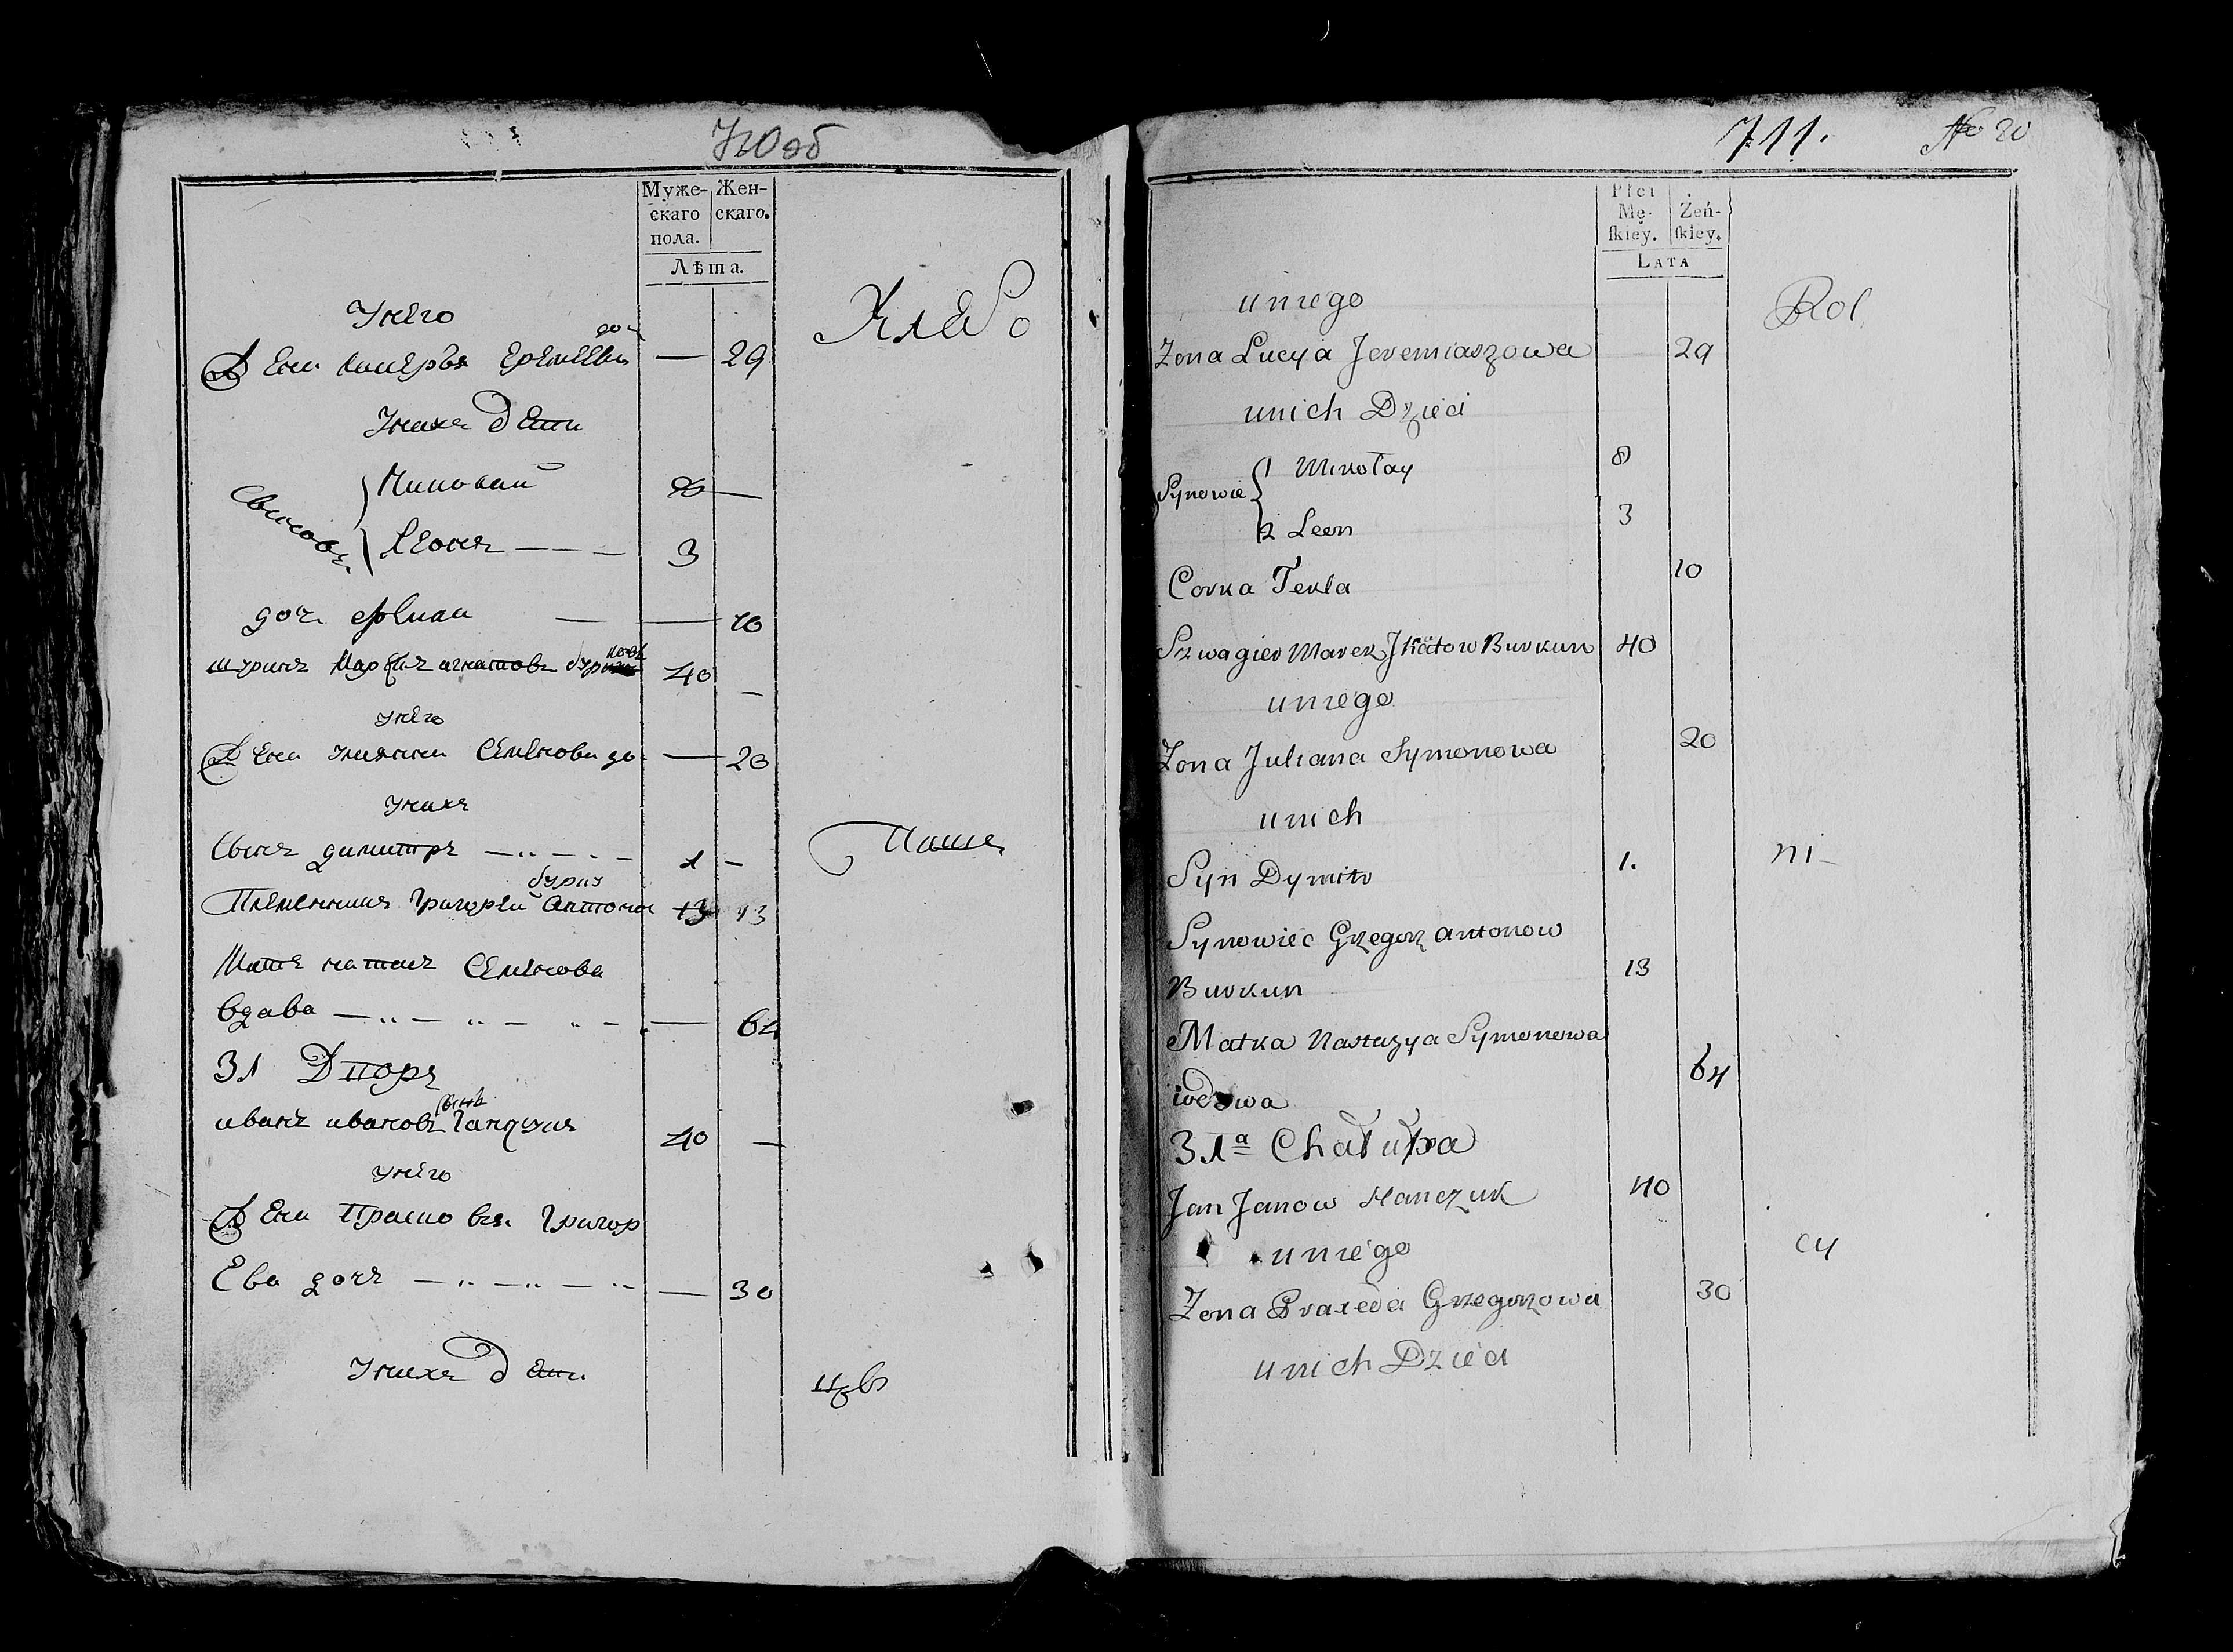 710 об
Муже-
скаго
пола.
Жен-
скаго.
Лѣта.
Унего
доч
Жена Ериміева 29
Унихъ дети
Сыновъ
Николай 8 —
Леонъ — — — 3
доч Фекла — — 10
шуринъ Марко Игнатовъ Бурку 40 —
унего
Жена Улияна Семенова до — 20
Унихъ
Сынъ димитръ 1 —
бурку
Племенникъ Григорей Антоно 13 13
Мать Семенова
вдава — 64
31 Дворъ
сынъ
иванъ ивановъ Ганчукъ 40 —
унего
Жена Прасковя Григор
Ева дочь — 30
Унихъ дети
Хлебо
Паше
711.
No 20
Płci
Mę-
ſkiey.
Żeń-
ſkiey.
LATA
uniego
Zona Lucyia Jeremiaszowa 29
unich Dzieci
Synowie
1 Mikołay 8
2 Leon 3
Corka Tekla 10
Szwagier Marek Burkun 40
uniego
Zona Juliana Symonowa 20
unich
Syn Dymitr 1.
Synowiec Grzegorz Antonow
Burkun 13
Matka Nastazya Symonowa
wdowa 64
31ª Chałupa
Jan Janow Hanczuk 40
uniego
Zona Praxeda Grzegorzowa 30
unich Dzieci
Rol
ni-
cy